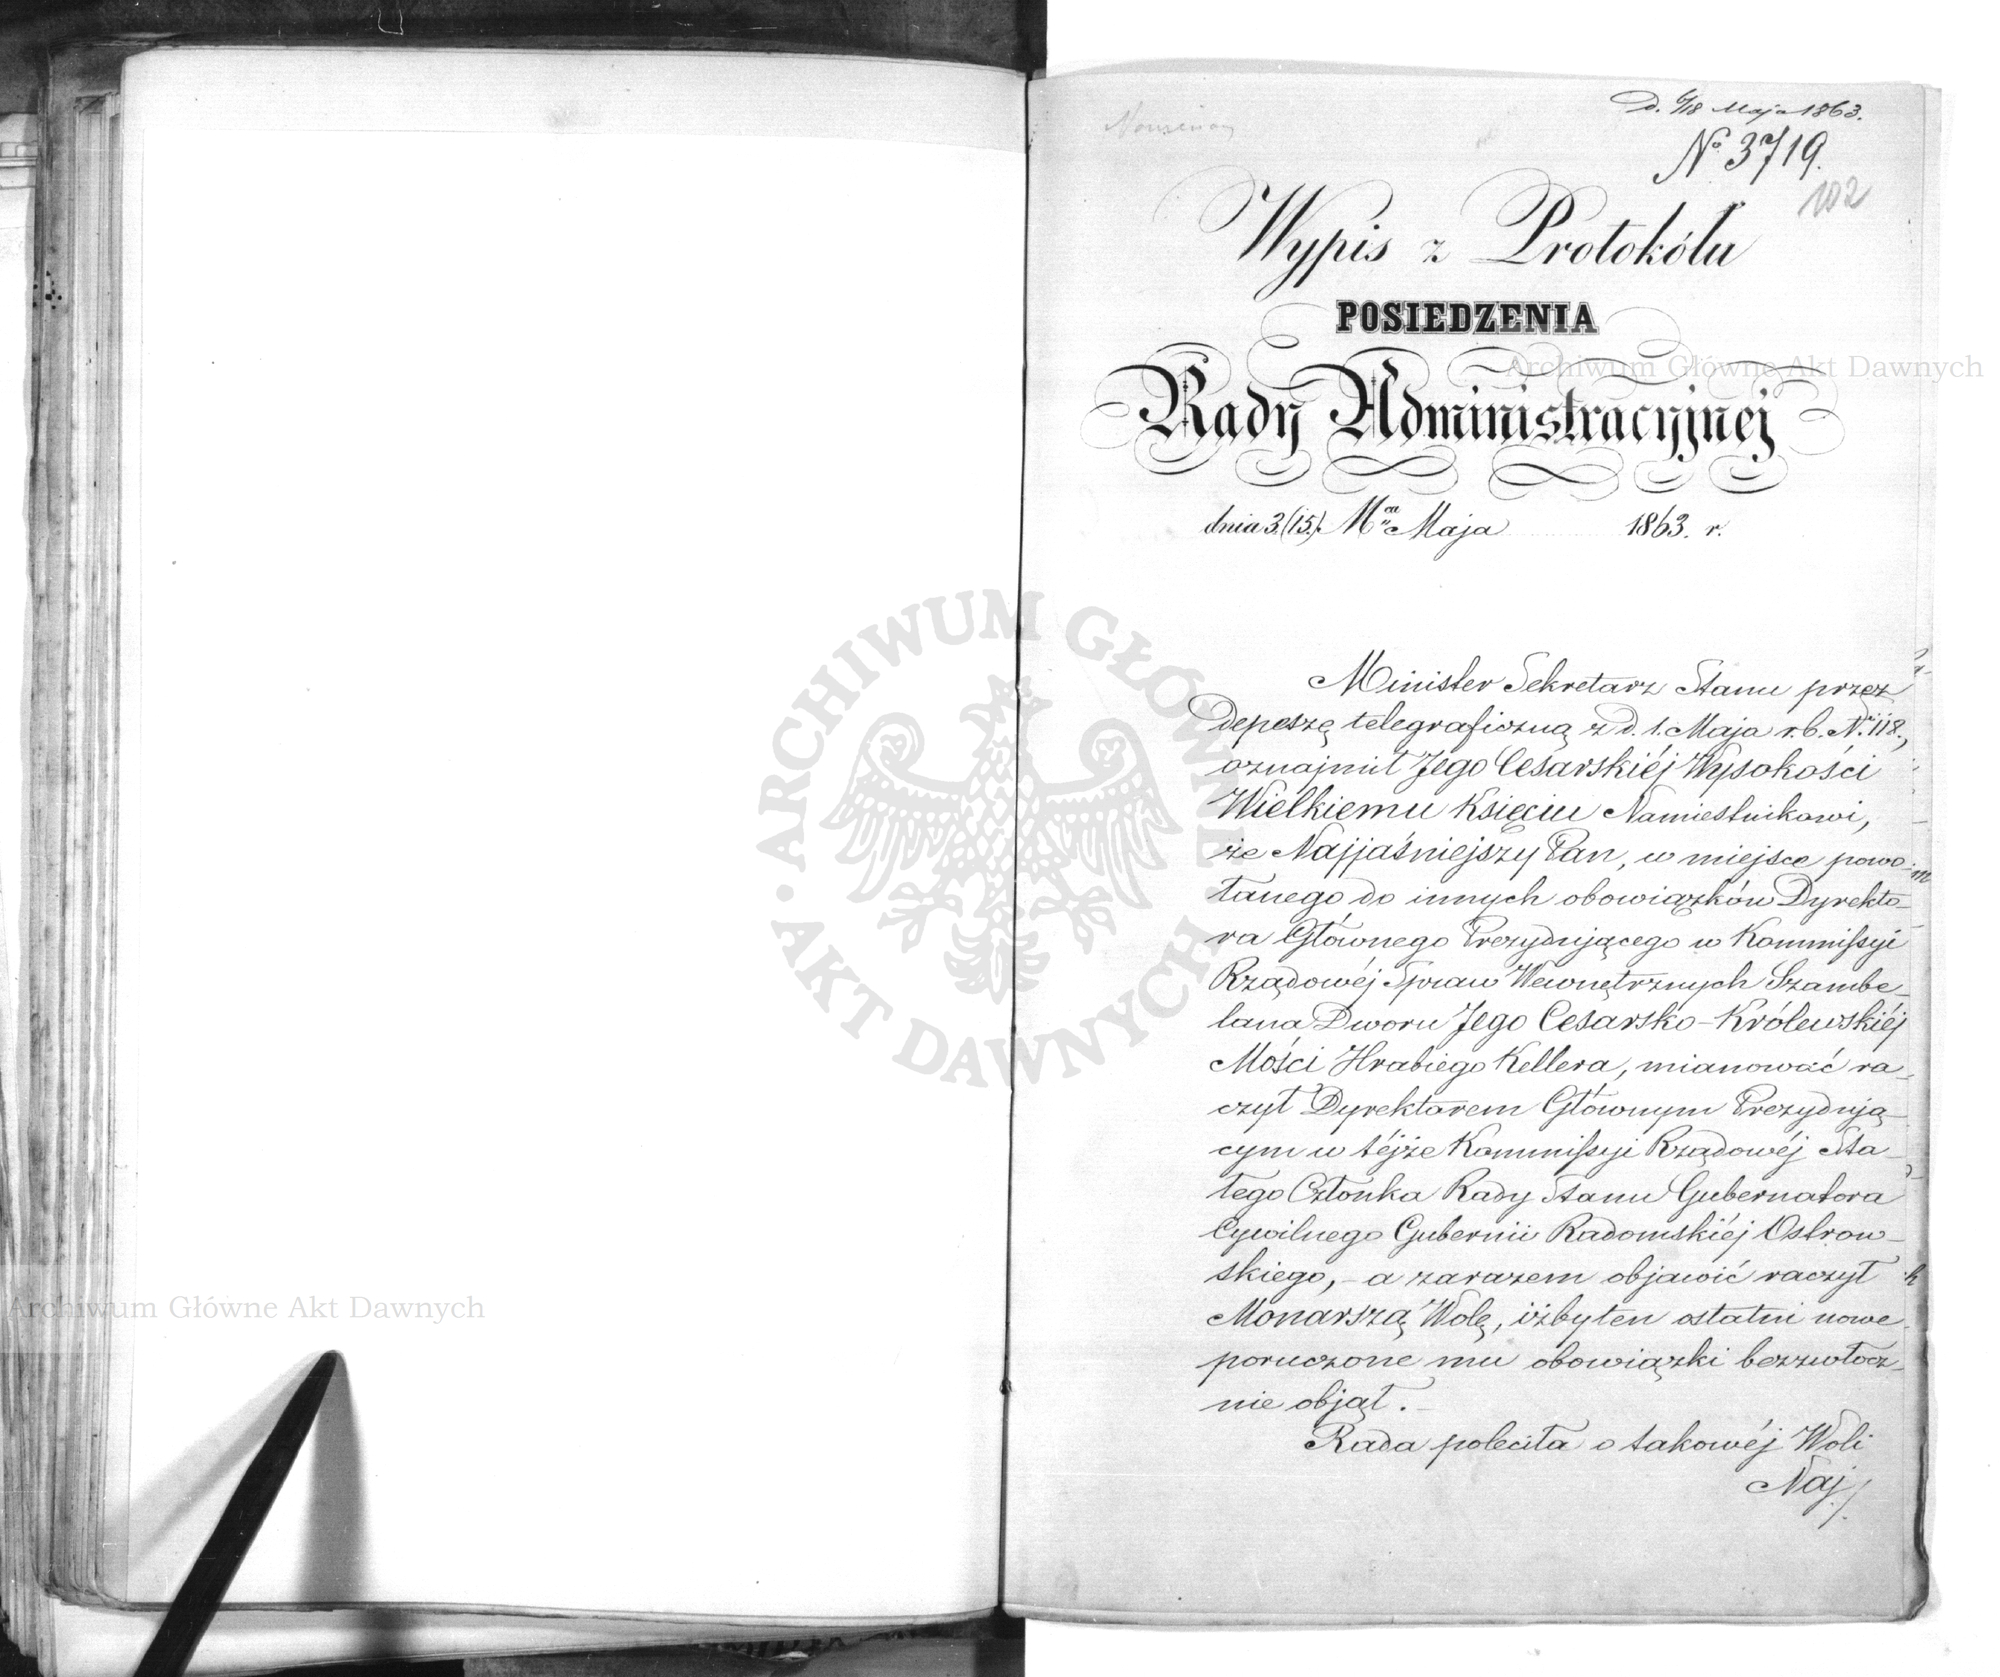 D. 6/18 Maja 1863.
№ 3719.
102
Wypis z Protokółu
POSIEDZENIA
Rady Administracyjnej
dnia 3.(15.) Mca Maja 1863. r.
Minister Sekretarz Stanu przez
depeszę telegraficzną z d. 1. Maja r.b. Nr. 118.,
oznajmił Jego Cesarskiéj Wysokości
Wielkiemu Księciu Namiestnikowi,
że Najjaśniejszy Pan, w miejsce powo-
łanego do innych obowiązków Dyrekto-
ra Głównego Prezydującego w Kommissyi
Rządowéj Spraw Wewnętrznych Szambe-
lana Dworu Jego Cesarsko-Królewskiéj
Mości Hrabiego Kellera, mianować ra-
czył Dyrektorem Głównym Prezydują-
cym w téjże Kommissyi Rządowéj Sta-
łego Członka Rady Stanu Gubernatora
Cywilnego Gubernii Radomskiéj Ostrow-
skiego, - a zarazem objawić raczył
Monarszą Wolę, iżby ten ostatni nowe
poruczone mu obowiązki bezzwłocz-
nie objął. -
Rada poleciła o takowéj Woli
Naj/.
Archiwum Główne Akt Dawnych
Archiwum Główne Akt Dawnych
ARCHIWUM GŁÓWNE AKT DAWNYCH